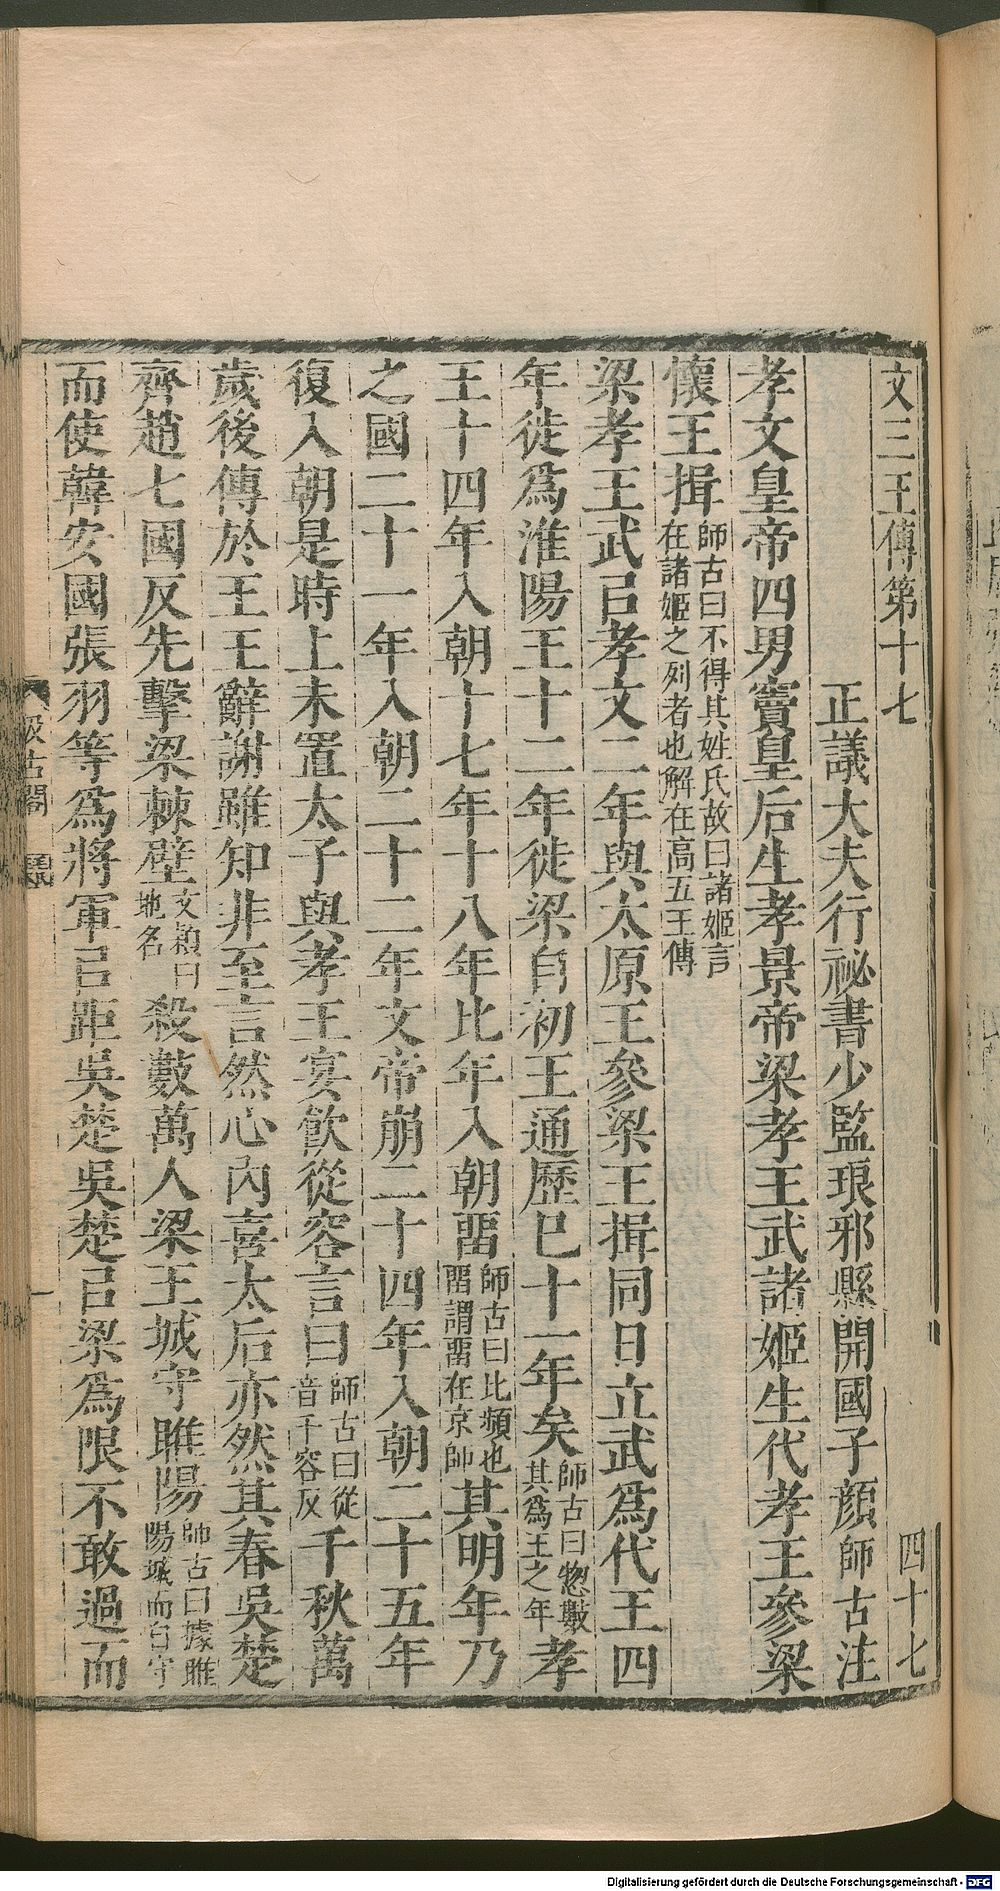 文三王傳第十七 四十七
正議大夫行祕書少監琅邪縣開國子顏師古注
孝文皇帝四男竇皇后生孝景帝梁孝王武諸姬生代孝王參梁
懷王揖師古曰不得其姓氏故曰諸姬言在諸姬之列者也解在高五王傳
梁孝王武㠯孝文二年與太原王參梁王揖同日立武爲代王四
年徙爲淮陽王十二年徙梁自初王通歷已十一年矣師古曰揔數其爲王之年孝
王十四年入朝十七年十八年比年入朝畱師古曰比頻也畱謂畱在京師其明年乃
之國二十一年入朝二十二年文帝崩二十四年入朝二十五年
復入朝是時上未置太子與孝王宴飮從容言曰師古曰從音千容反千秋萬
歲後傳於王王辭謝雖知非至言然心內喜太后亦然其春吳楚
齊趙七國反先擊梁棘壁文穎曰地名殺數萬人梁王城守睢陽師古曰據睢陽城而自守
而使韓安國張羽等爲將軍㠯距吳楚吳楚㠯梁爲限不敢過而
汲古閣
Digitalisierung gefördert durch die Deutsche Forschungsgemeinschaft - DFG